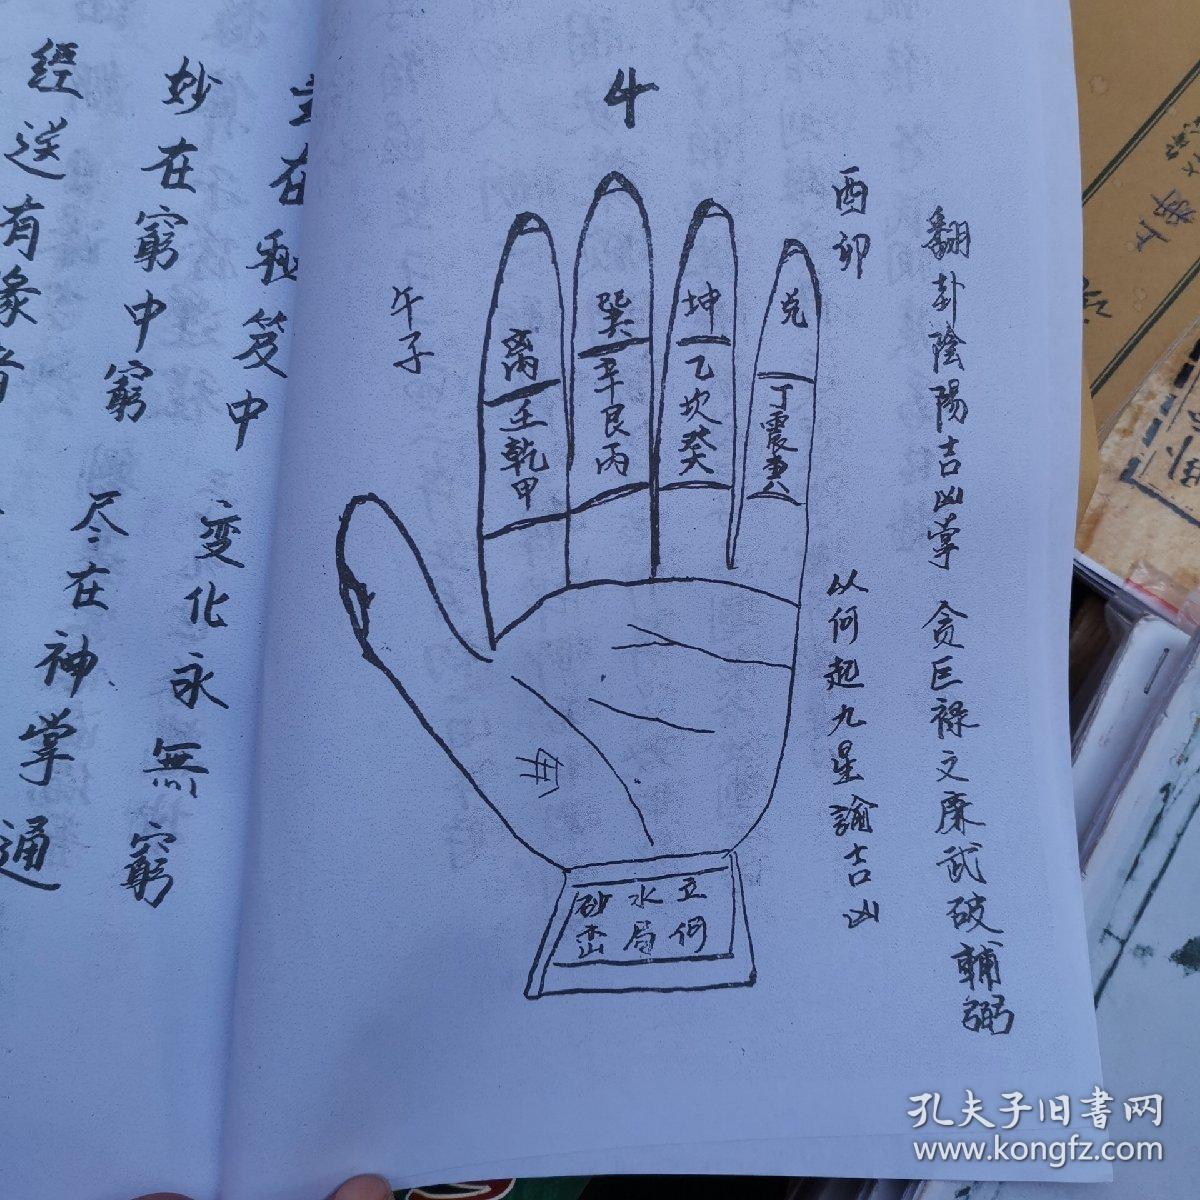 翻卦陰陽吉凶掌 贪巨祿文廉武破輔弼
酉卯
以何起九星諭吉凶
4
午子
离
壬乾甲
巽
辛艮丙
坤
乙坎癸
丁震
立何
水局
砂峦
妙在窮中窮
变化永無窮
尽在神掌
經送有緣者
通
孔夫子旧書网
www.kongfz.com